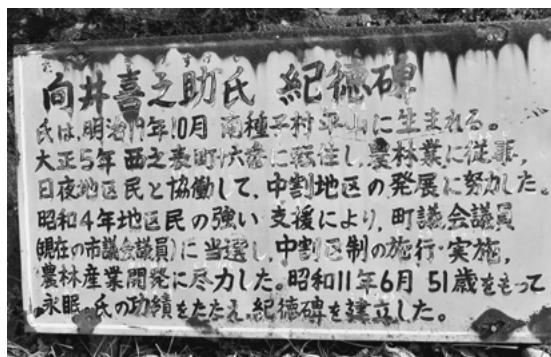 向井喜之助氏 紀徳碑
氏は、明治19年10月 南種子村平山に生まれる。
大正5年 西之表町十六番に転住し、農林業に従事、
日夜地区民と協働して、中割地区の発展に努力した。
昭和4年地区民の強い支援により、町議会議員
(現在の市議会議員)に当選し、中割区制の施行・実施、
農林産業開発に尽力した。昭和11年6月 51歳をもって
永眠。氏の功績をたたえ 紀徳碑を建立した。